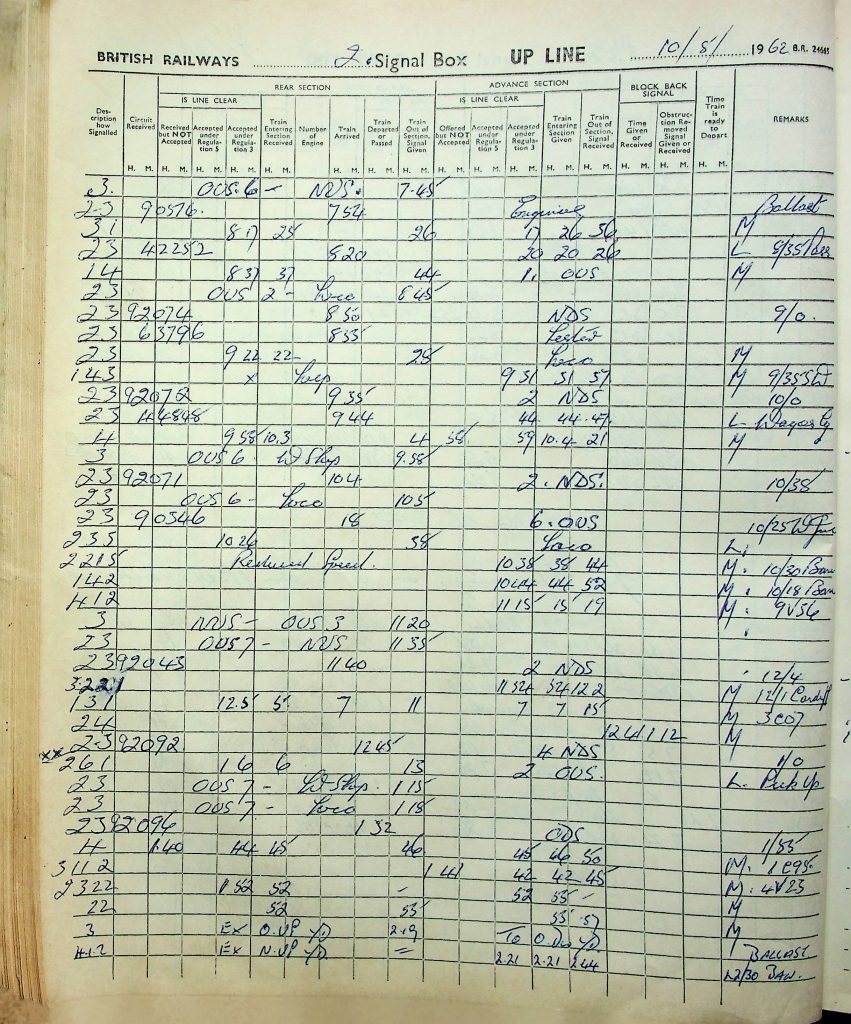 BRITISH RAILWAYS 2. Signal Box UP LINE 10/5/ 1962 B.R. 24645
REAR SECTION ADVANCE SECTION BLOCK BACK SIGNAL
IS LINE CLEAR IS LINE CLEAR
Description how Signalled Circuit Received Received but NOT Accepted Accepted under Regulation 5 Accepted under Regulation 3 Train Entering Section Received Number of Engine Train Arrived Train Departed or Passed Train Out of Section, Signal Given Offered but NOT Accepted Accepted under Regulation 5 Accepted under Regulation 3 Train Entering Section Given Train Out of Section, Signal Received Time Given or Received Obstruction Removed Signal Given or Received Time Train is ready to Depart REMARKS
H. M. H. M. H. M. H. M. H. M. H. M. H. M. H. M. H. M. H. M. H. M. H. M. H. M. H. M. H. M. H. M.
3. OUS. 6 - NUS. 7.45
2-3 90576. 754 Engineer Ballast
31 8 17 25 26 17 26 36 M
23 42252 820 20 20 26 L 9/35
14 8 37 37 44 OUS M
23 OUS 2 - Loco 8 45
23 92074 8 50 NDS 9/0.
23 63796 8 55
23 9 22 22 25 Loco M
143 x Loop 9 31 31 37 M 9/35
23 92072 9 35 2 NDS 10/0
23 44848 944 44. 44. 47. L
4 9 58 10.3 4 58 59 10.4 21 M
3 OUS 6 - 9.58
23 92071 104 2. NDS. 10/35
23 OUS 6 - Loco 105
23 90346 18 6. OUS 10/25
235 10 26 38 Loco L.
2215 Reduced Speed. 10.38 38 44 M. 10/30
142 1044 44 52 M. 10/18
412 11 15 15 19 M. 9V56
3 NUS - OUS 3 11 20
23 OUS 7 - NUS 11 35
23 92043 11 40 2 NDS 12/4
3.2.2.1 11 54 54 12 2 M 12/1 Cardiff
131 12.5 5 7 11 7 7 15 M 3C07
24 12 4 1 12 M
xx 2-3 92092. 12 45 4 NDS 1/0
261 1 6 6 13 2 OUS. L. Pick Up
23 OUS 7 - 1 15
23 OUS 7 - Loco 1 18
23 92096 1 32 ODS 1/55
4 1.40 44 45 46 45 46 50 M. 1E95
3112 1 41 42 42 45 M. 4V23
2322 1 52 52 - 52 55 - M
22 52 55 55 57 M
3 Ex O. UP Y/D 2.19 To O. Dn Y/D BALLAST
4.1.2 Ex N. UP Y/D = 2.21 2.21 2.44 L2/30 BAN.